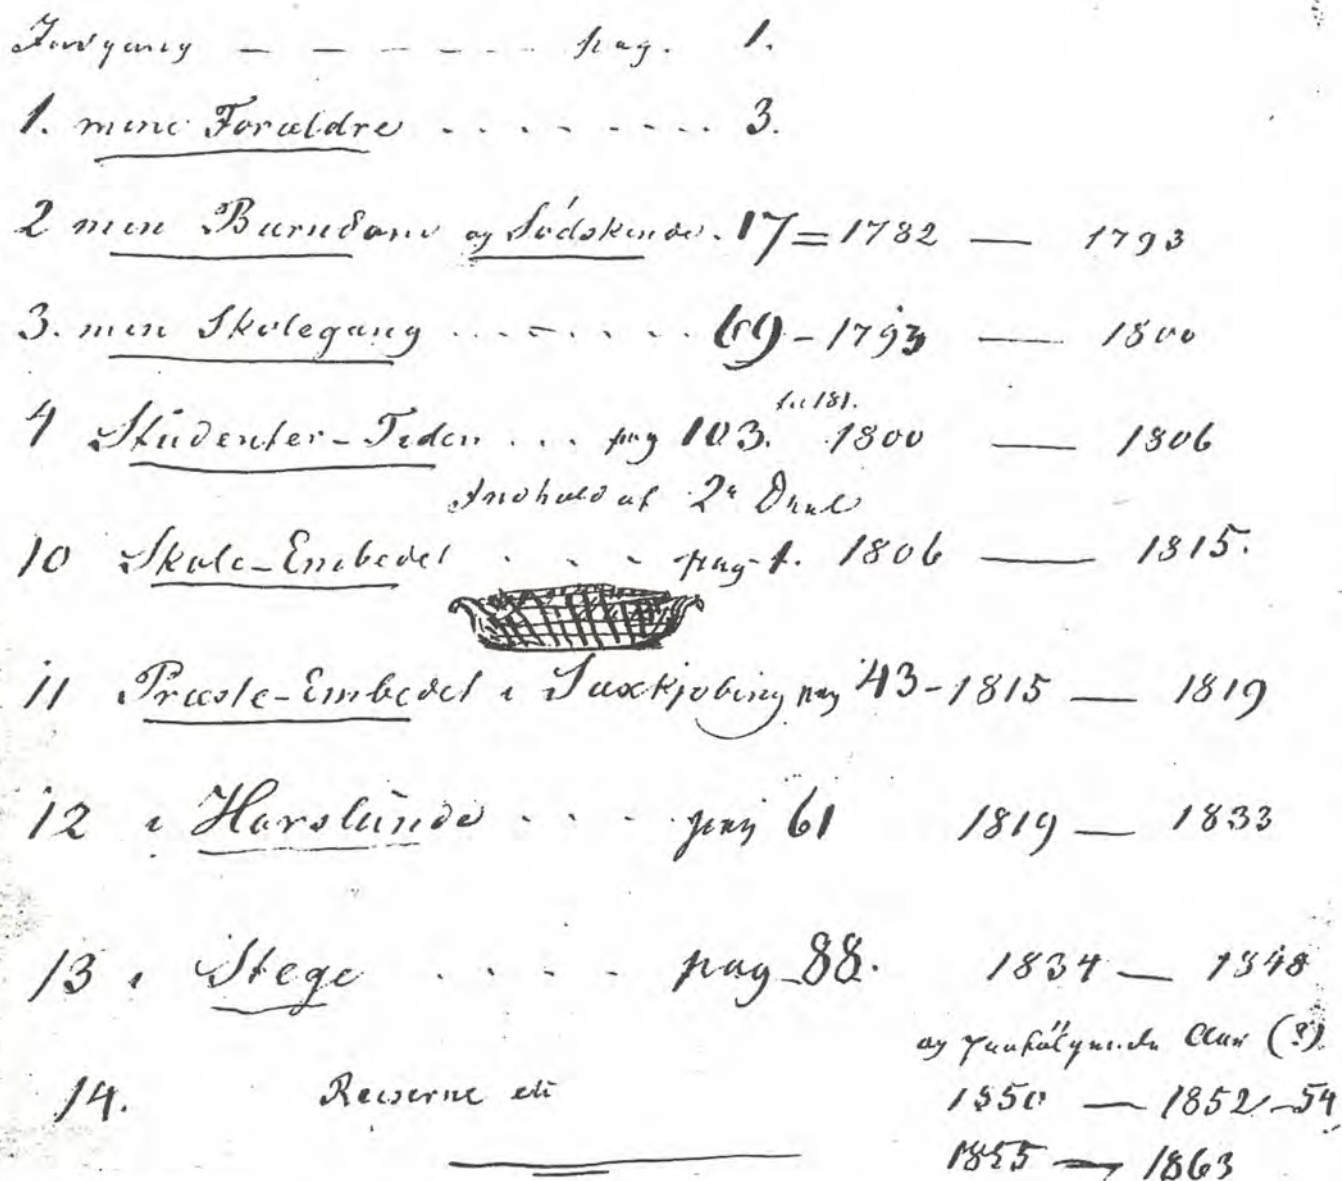 Indgang — — — - - - pag. 1.
1. mine Forældre . . . - . . . . 3.
2 min Barndom og Södskende. 17 = 1782 — 1793
3. min Skolegang . . . . . . . . 69 - 1793 — 1800
4 Studenter-Tiden . . . pag 103. til 181. 1800 — 1806
Indhold af 2n Deel
10 Skole-Embedet . . . pag 1. 1806 — 1815.
11 Præste-Embedet i Saxkjøbing pag 43 - 1815 — 1819
12 i Horslunde . . . pag 61 1819 — 1833
13 i Stege . . . . pag 88. 1834 — 1848
og Aar (?)
14. Reiserne etc 1850 — 1852-54
1855 — 1863